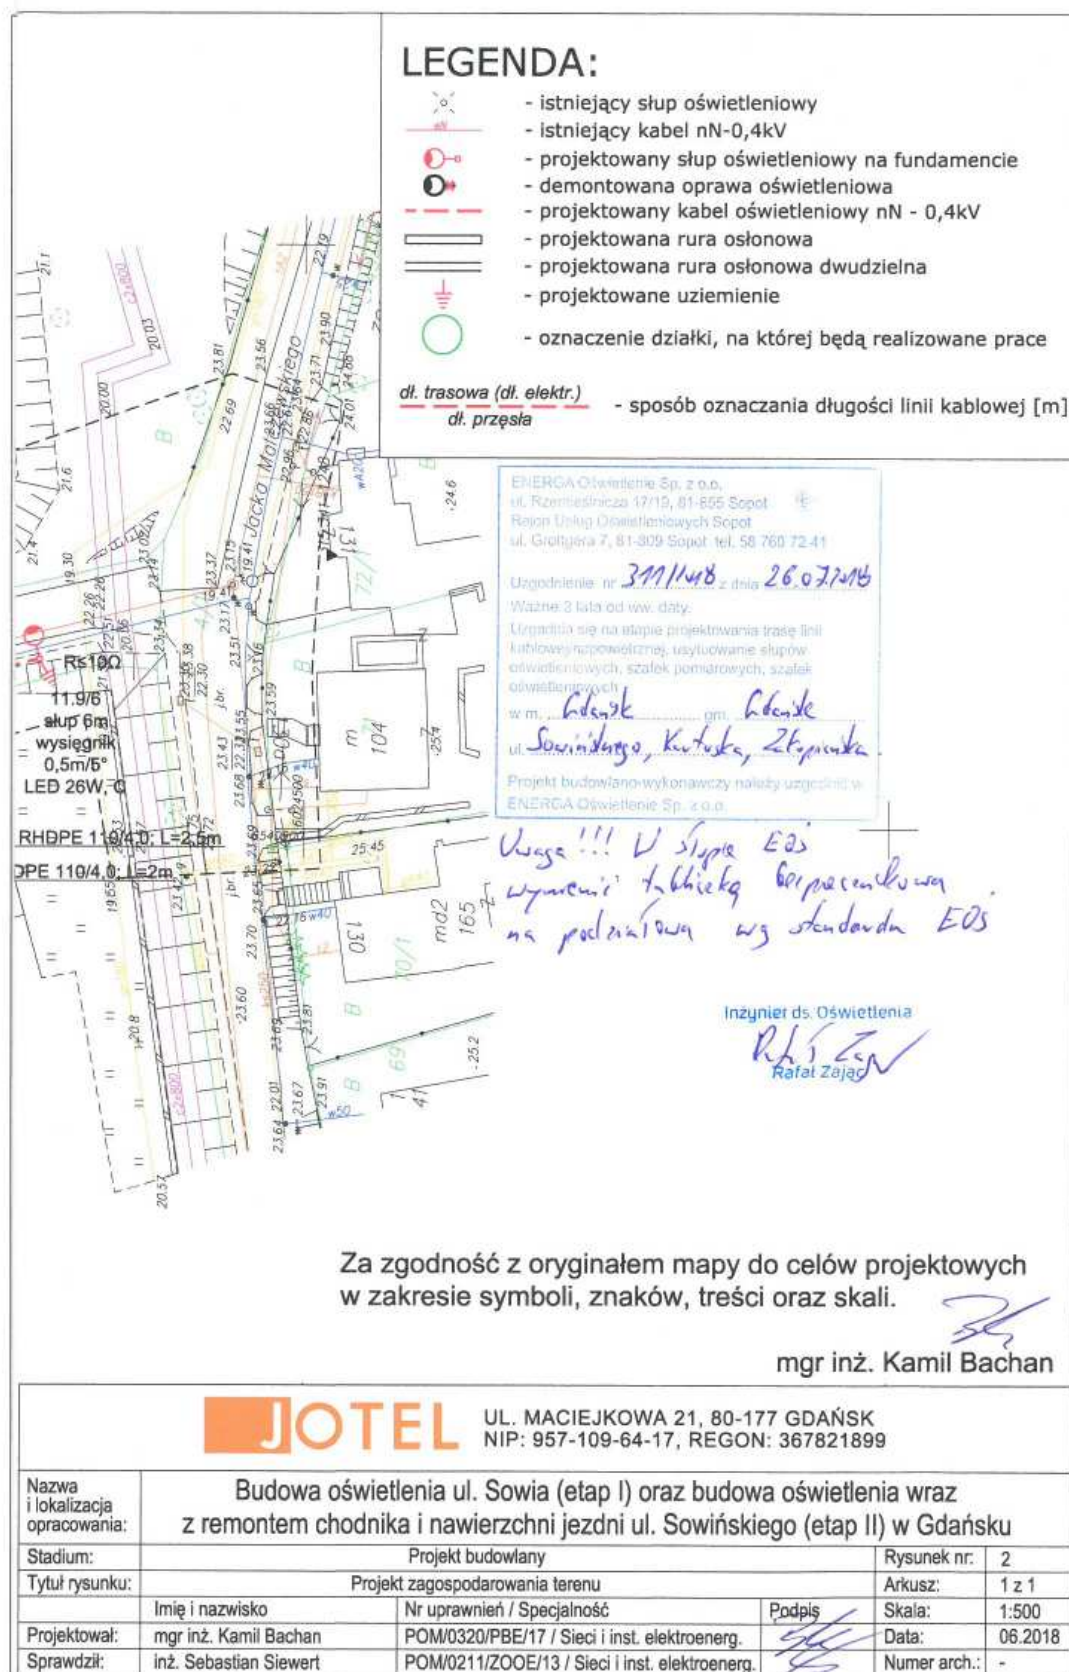 LEGENDA:
- istniejący słup oświetleniowy
- istniejący kabel nN-0,4kV
- projektowany słup oświetleniowy na fundamencie
- demontowana oprawa oświetleniowa
- projektowany kabel oświetleniowy nN - 0,4kV
- projektowana rura osłonowa
- projektowana rura osłonowa dwudzielna
- projektowane uziemienie
- oznaczenie działki, na której będą realizowane prace
dł. trasowa (dł. elektr.)
dł. przęsła
- sposób oznaczania długości linii kablowej [m]
21.1
c2x800
20.03
22.19
23.81
23.56
23.90
23.71
20.00
22.69
24.01
Jacka Malczewskiego
B
wA20
-24.6
21.6
21.4
19.30
23.14
23.37
23.15
19.41
131
72/
22.26
23.17
23.51
20.86
R≤10Ω
11.9/6
słup 6m
wysięgnik
0,5m/5°
LED 26W, C
22.30
j.br.
23.59
23.43
23.55
23.68
m
104
-25.4
w40
RHDPE 110/4,0; L=2,5m
DPE 110/4,0; L=2m
25.45
23.69
19.65
23.65
j.br.
w40
md2
165
130
70/1
23.70
ks250
-23.60
23.81
B
20.8
23.69
-25.2
69
B
c2x800
22.01
23.67
23.91
w50
41
23.64
20.57
ENERGA Oświetlenie Sp. z o.o.
ul. Rzemieślnicza 17/19, 81-855 Sopot
Rejon Usług Oświetleniowych Sopot
ul. Grottgera 7, 81-809 Sopot tel. 58 760 72 41
Uzgodnienie nr 311/2018 z dnia 26.07.2018
Ważne 3 lata od ww. daty.
Uzgadnia się na etapie projektowania trasę linii
kablowej/napowietrznej, usytuowanie słupów
oświetleniowych, szafek pomiarowych, szafek
oświetleniowych
w m. Gdańsk gm. Gdańsk
ul. Sowińskiego, Kartuska, Zakopiańska
Projekt budowlano-wykonawczy należy uzgodnić w
ENERGA Oświetlenie Sp. z o.o.
Uwaga !!! W słupie EOŚ
wymienić tabliczkę bezpiecznikową
na podziałową wg standardu EOŚ
Inżynier ds. Oświetlenia
Rafał Zając
Za zgodność z oryginałem mapy do celów projektowych
w zakresie symboli, znaków, treści oraz skali.
mgr inż. Kamil Bachan
JOTEL
UL. MACIEJKOWA 21, 80-177 GDAŃSK
NIP: 957-109-64-17, REGON: 367821899
Nazwa
i lokalizacja
opracowania:
Budowa oświetlenia ul. Sowia (etap I) oraz budowa oświetlenia wraz
z remontem chodnika i nawierzchni jezdni ul. Sowińskiego (etap II) w Gdańsku
Stadium: Projekt budowlany Rysunek nr: 2
Tytuł rysunku: Projekt zagospodarowania terenu Arkusz: 1 z 1
Imię i nazwisko Nr uprawnień / Specjalność Podpis Skala: 1:500
Projektował: mgr inż. Kamil Bachan POM/0320/PBE/17 / Sieci i inst. elektroenerg. Data: 06.2018
Sprawdził: inż. Sebastian Siewert POM/0211/ZOOE/13 / Sieci i inst. elektroenerg. Numer arch.: -